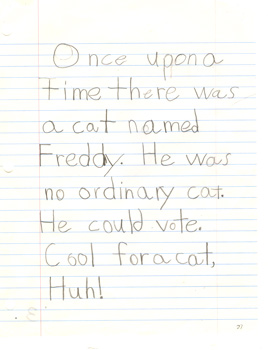 Once upon a
time there was
a cat named
Freddy. He was
no ordinary cat.
He could vote.
Cool for a cat,
Huh!